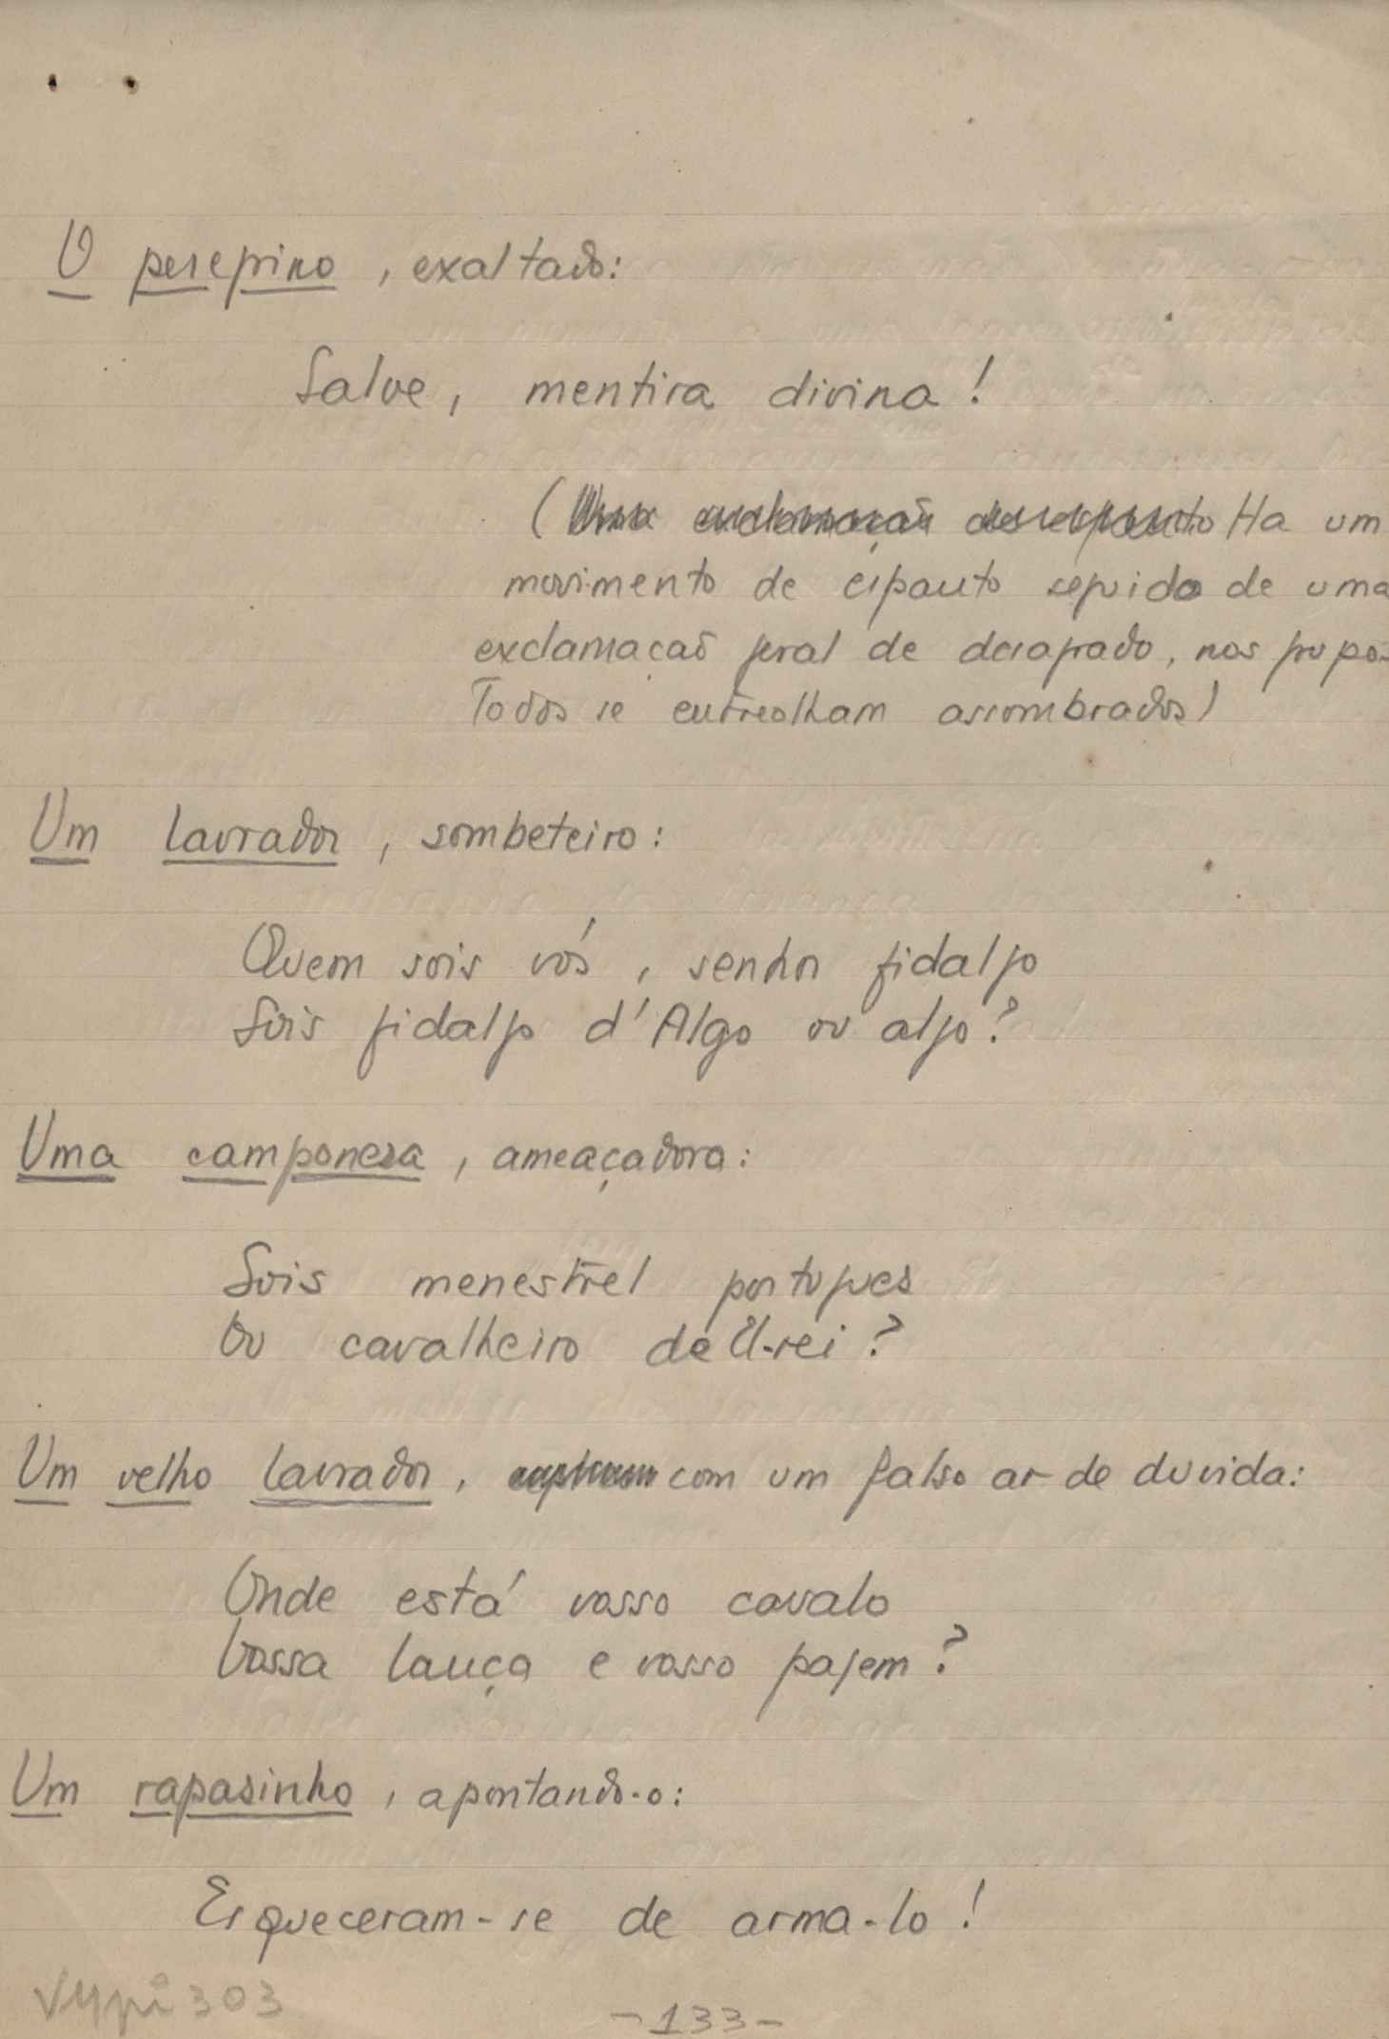 O peregrino, exaltado:
Salve, mentira divina!
(Uma exclamação de espanto Ha um
movimento de espanto seguido de uma
exclamacaõ geral de desagrado, nos grupos.
Todos se entreolham assombrados)
Um lavrador, sombeteiro:
Quem sois vós, senhor fidalgo
Sois fidalgo d'Algo ou algo?
Uma camponesa, ameaçadora:
Sois menestrel portugues
Ou cavalheiro de El-rei?
Um velho lavrador, com um falso ar de duvida:
Onde está vosso cavalo
Vossa lança e vosso pajem?
Um rapasinho, apontando-o:
Esqueceram-se de arma-lo!
303
-133-